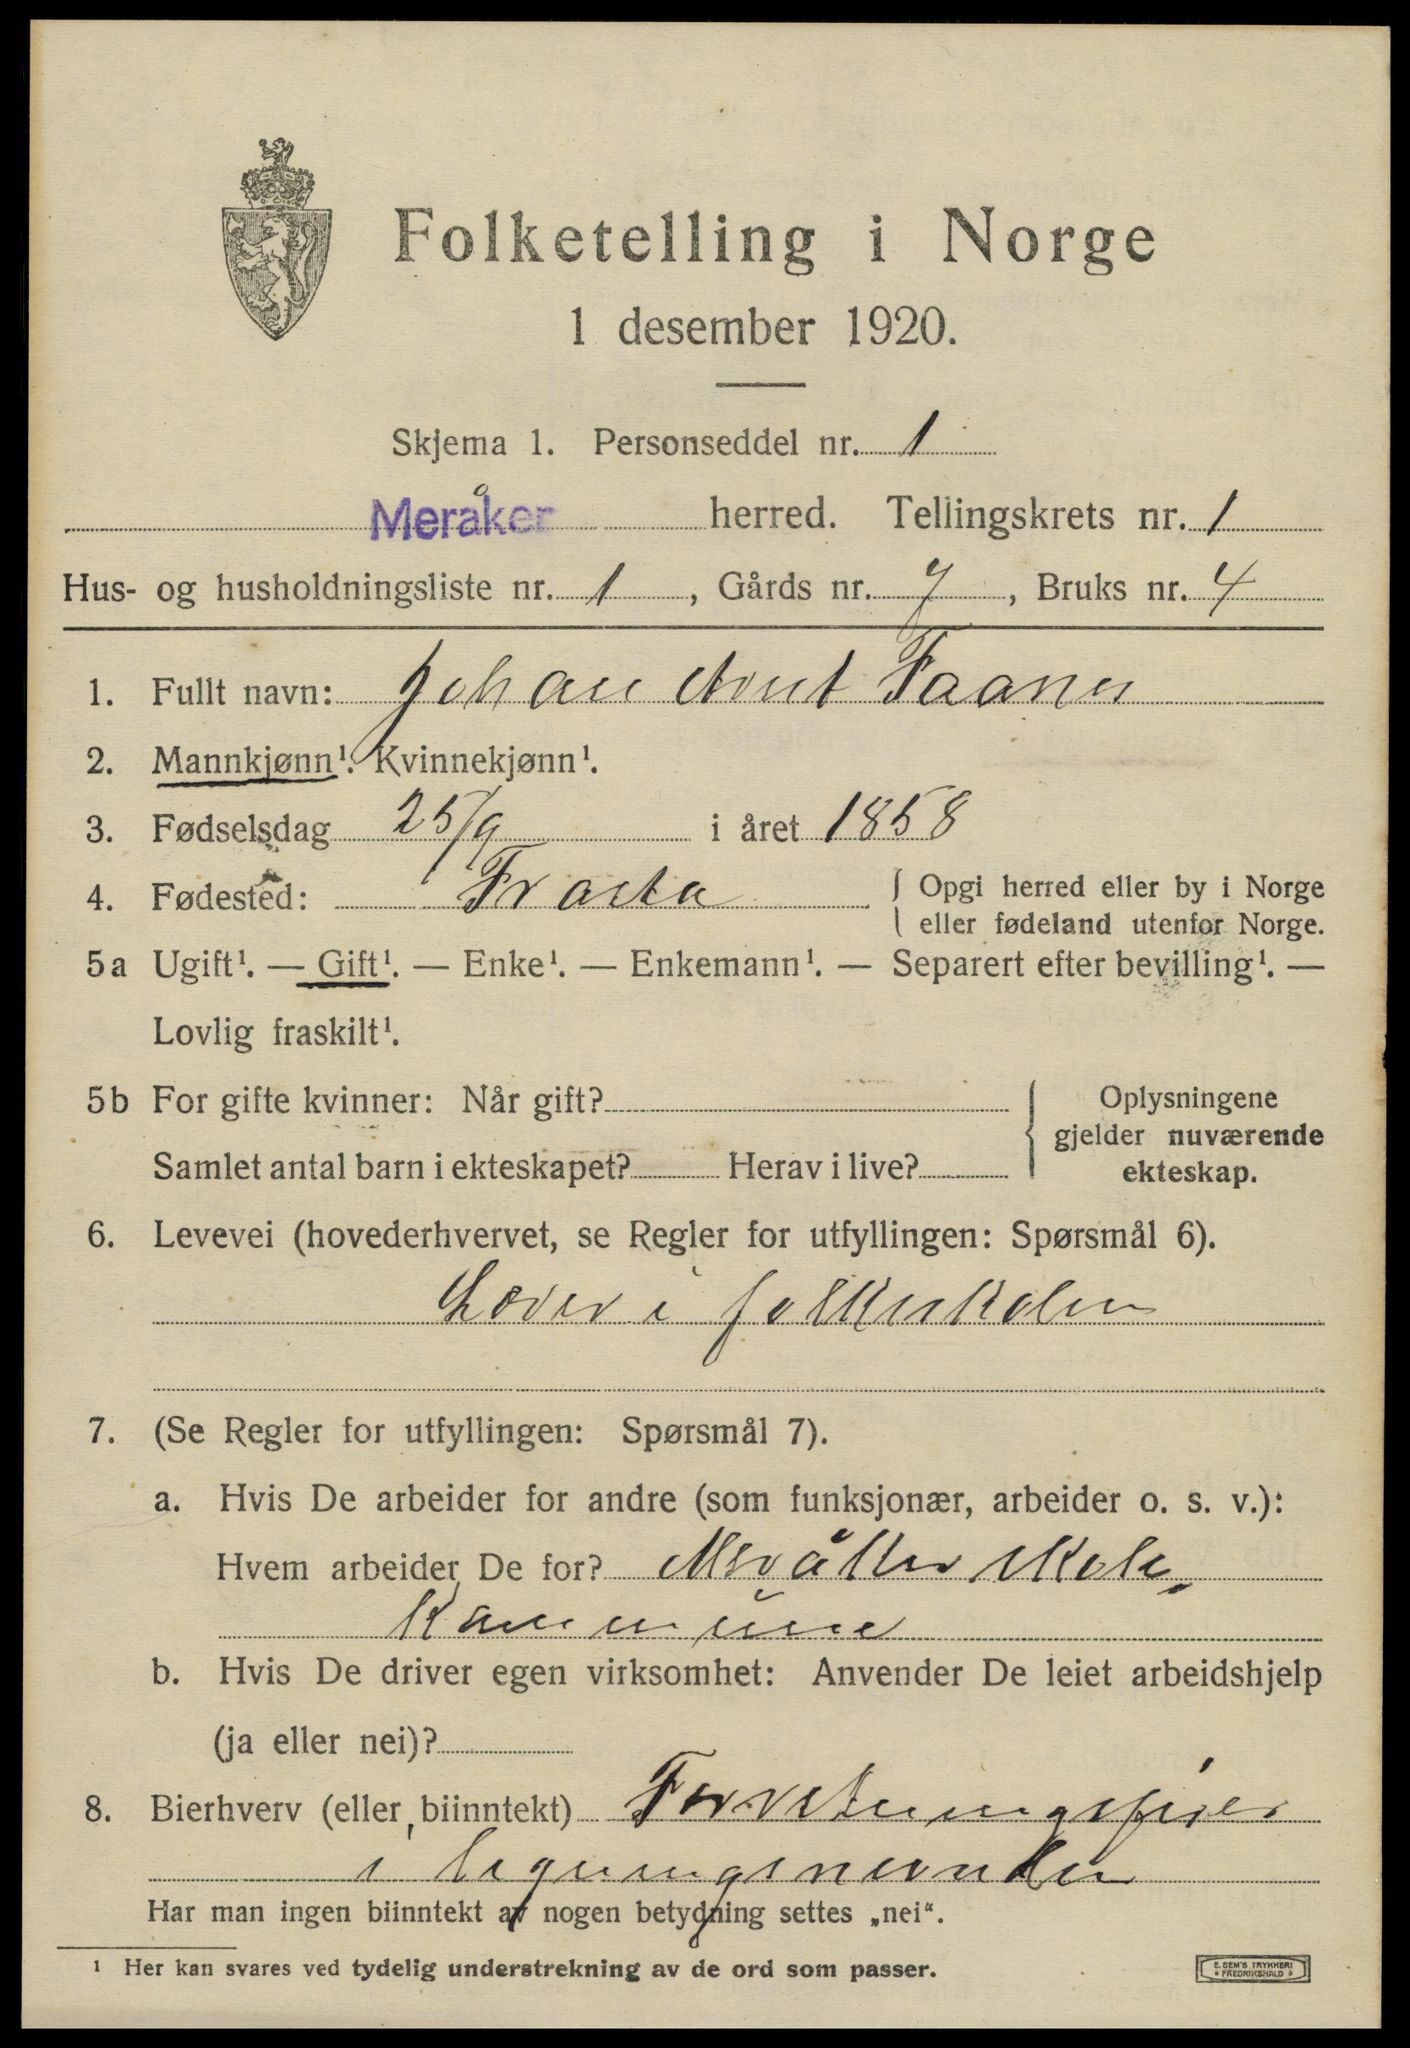 Folketelling i Norge
1 desember 1920.
Skjema 1. Personseddel nr. 1
Meråker herred. Tellingskrets nr. 1
Hus- og husholdningsliste nr. 1, Gårds nr. 7, Bruks nr. 4
1. Fullt navn: Johan Arnt Faanes
2. Mannkjønn¹. Kvinnekjønn¹.
3. Fødselsdag 25/9 i året 1858
4. Fødested: Frosta { Opgi herred eller by i Norge
eller fødeland utenfor Norge.
5a Ugift¹. — Gift¹. — Enke¹. — Enkemann¹. — Separert efter bevilling¹. —
Lovlig fraskilt¹.
5b For gifte kvinner: Når gift?
Samlet antal barn i ekteskapet? Herav i live?
Oplysningene
gjelder nuværende
ekteskap.
6. Levevei (hovederhvervet, se Regler for utfyllingen: Spørsmål 6).
Lærer i folkeskolen
7. (Se Regler for utfyllingen: Spørsmål 7).
a. Hvis De arbeider for andre (som funksjonær, arbeider o. s. v.):
Hvem arbeider De for? Meråker skole
kommune
b. Hvis De driver egen virksomhet: Anvender De leiet arbeidshjelp
(ja eller nei)?
8. Bierhverv (eller biinntekt) Forretningsfører
i ligningsnevnden
Har man ingen biinntekt av nogen betydning settes „nei“.
¹ Her kan svares ved tydelig understrekning av de ord som passer.
E. SEM'S TRYKKERI
FREDRIKSHALD